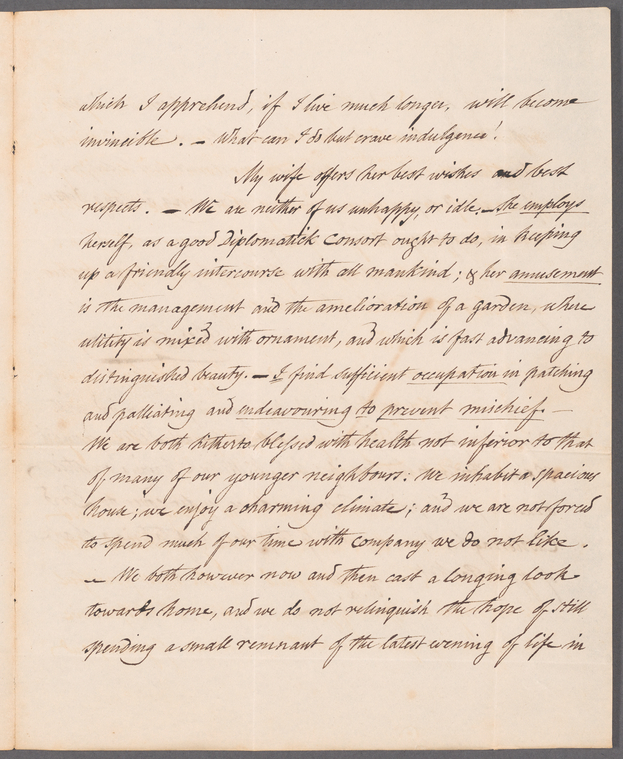 which I apprehend, if I live much longer, will become
invincible. – What can I do but crave indulgence!
My wife offers her best wishes and best
respects. – We are neither of us unhappy, or idle. – She employs
herself, as a good Diplomatick Consort ought to do, in keeping
up a friendly intercourse with all mankind; & her amusement
is the management and the amelioration of a garden, where
utility is mixed with ornament, and which is fast advancing to
distinguished beauty. – I find sufficient occupation in patching
and palliating and endeavouring to prevent mischief. –
We are both hitherto blessed with health not inferior to that
of many of our younger neighbours: we inhabit a spacious
house; we enjoy a charming climate; and we are not forced
to spend much of our time with company we do not like.
– We both however now and then cast a longing look
towards home, and we do not relinquish the hope of still
spending a small remnant of the latest evening of life in